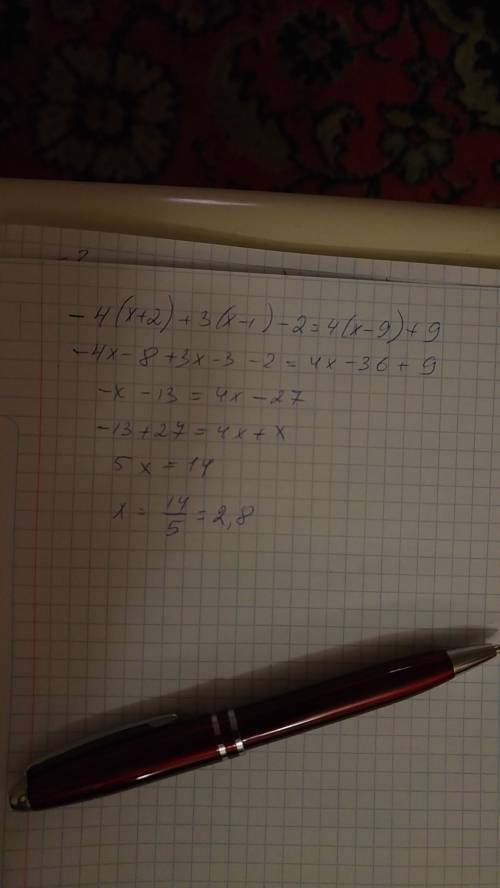 -4(x+2)+3(x-1)-2=4(x-9)+9
-4x-8+3x-3-2=4x-36+9
-x-13=4x-27
-13+27=4x+x
5x=14
x=14/5=2,8